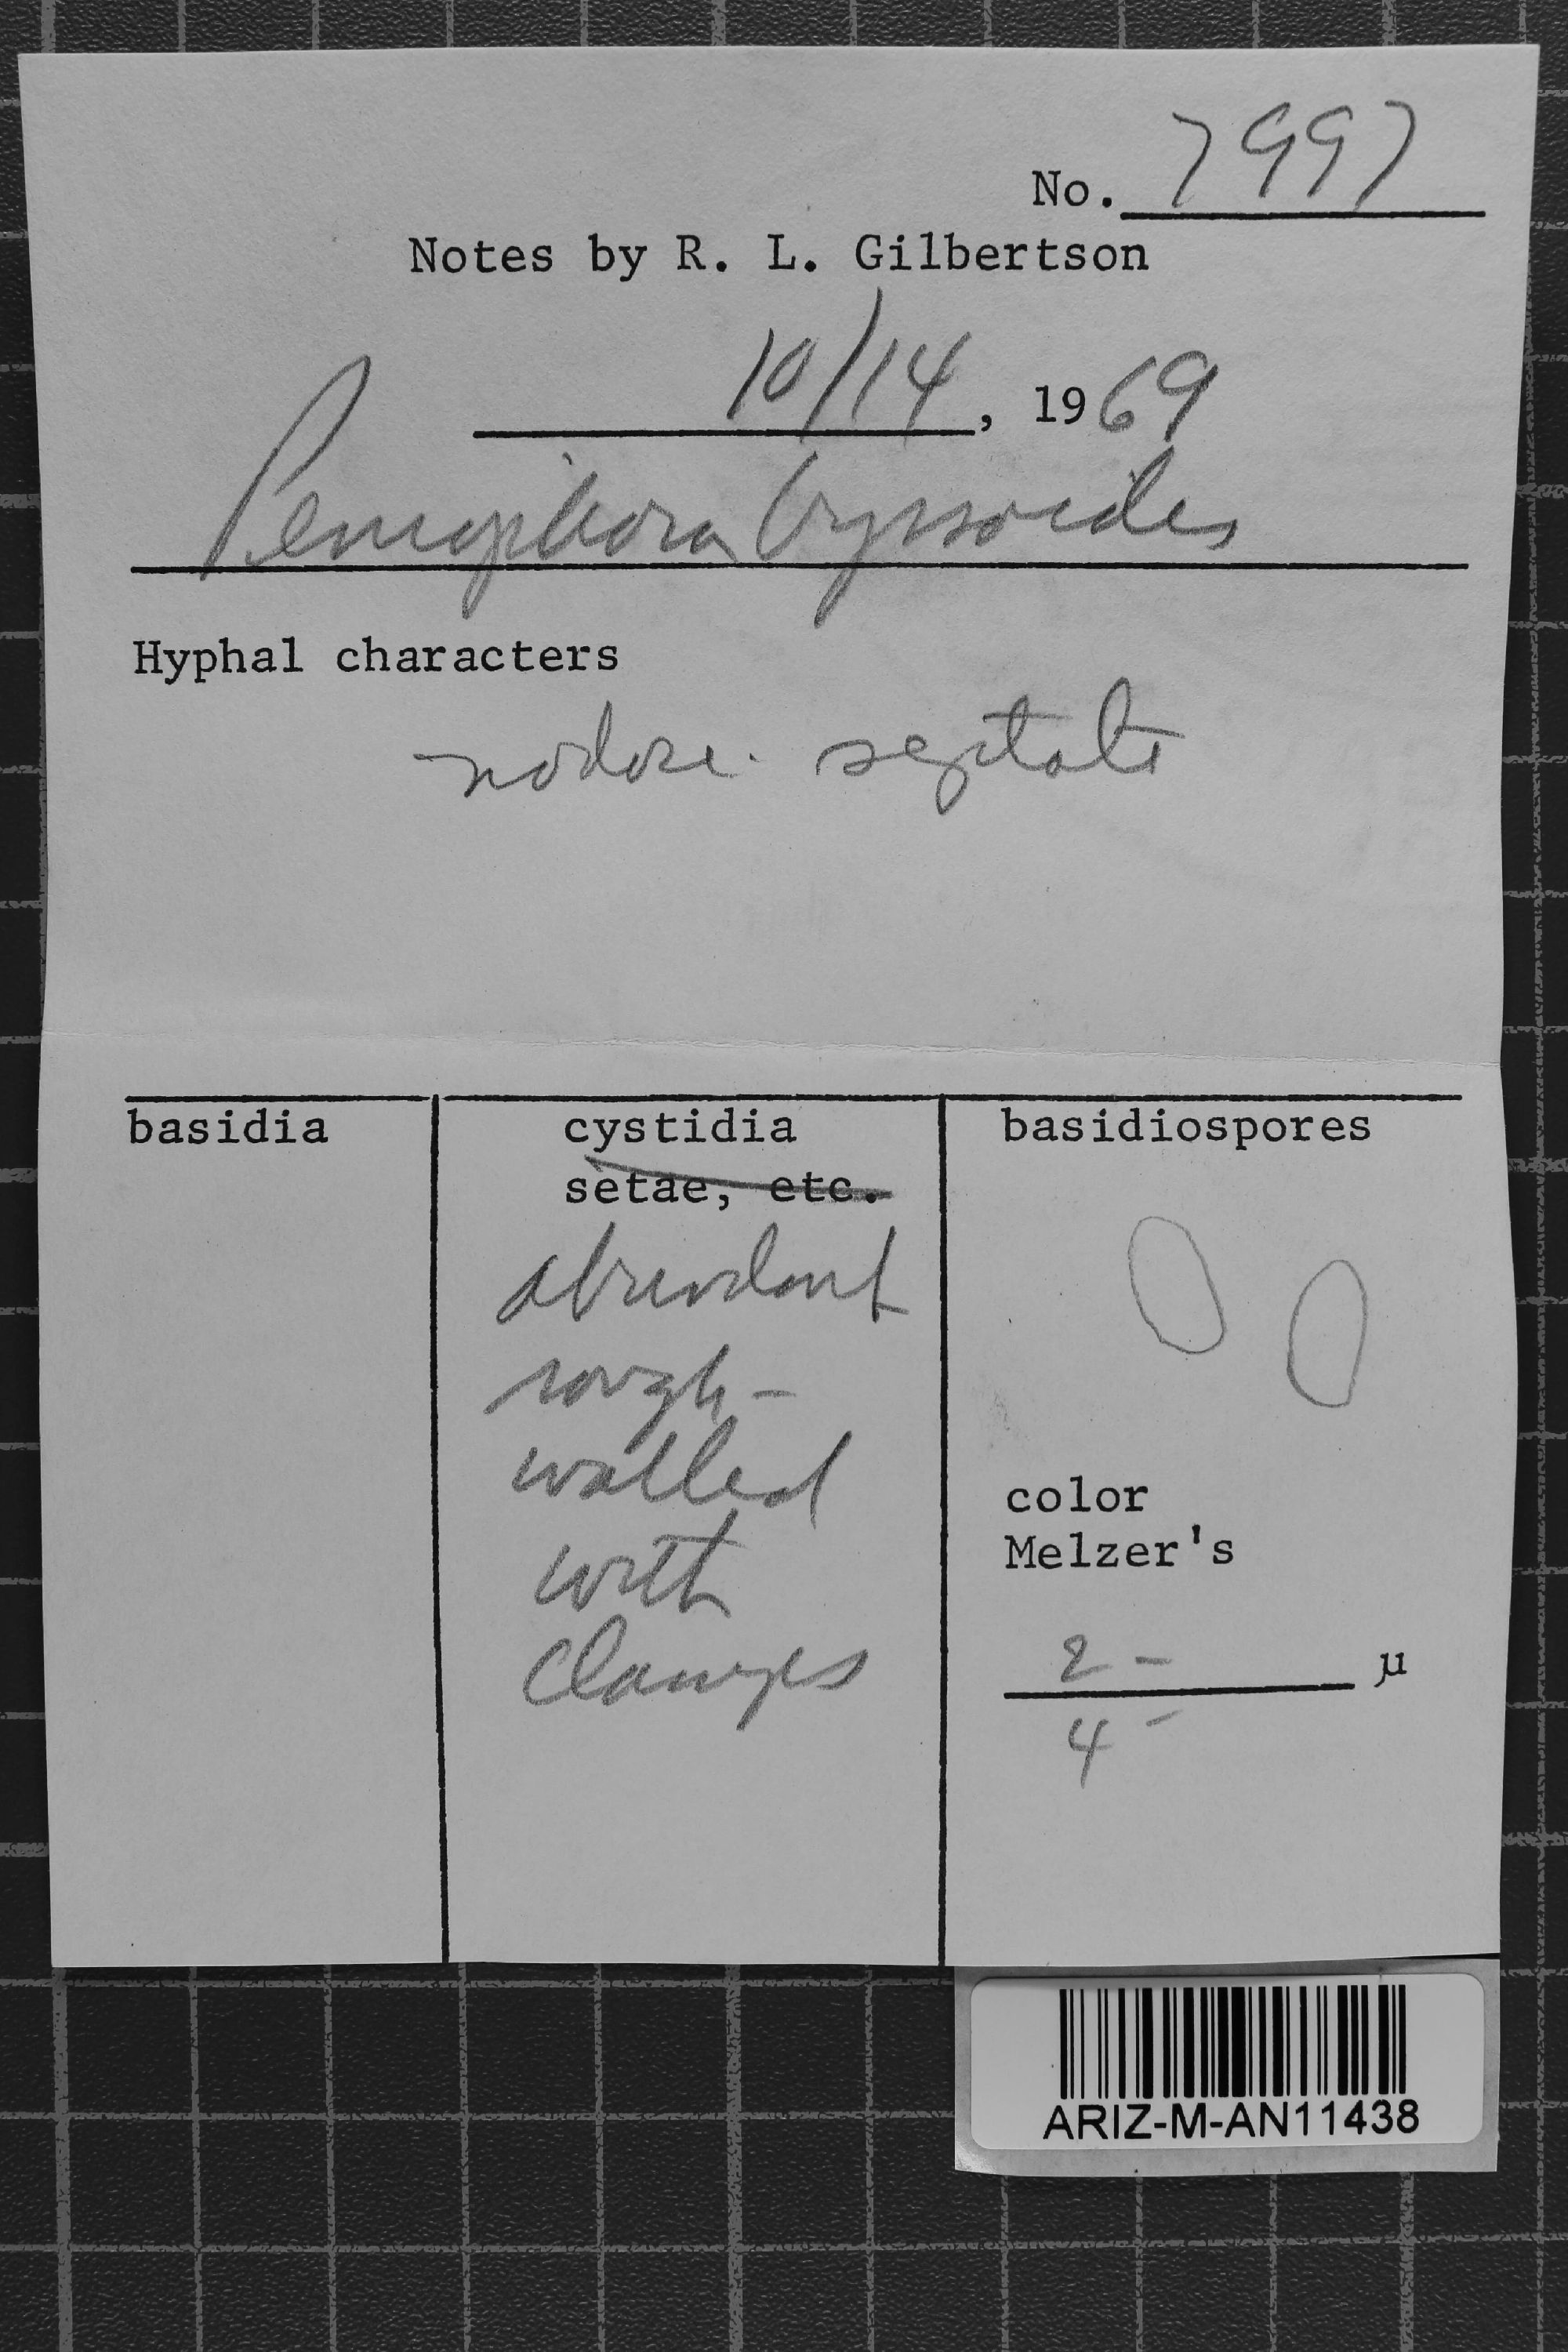 No. 7997
Notes by R. L. Gilbertson
10/14, 1969
Peniophora byssoides
Hyphal characters
nodose-septate
basidia
cystidia
setae, etc.
abundant
rough-
walled
with
clamps
basidiospores
color
Melzer's
2 - µ
4 -
ARIZ-M-AN11438